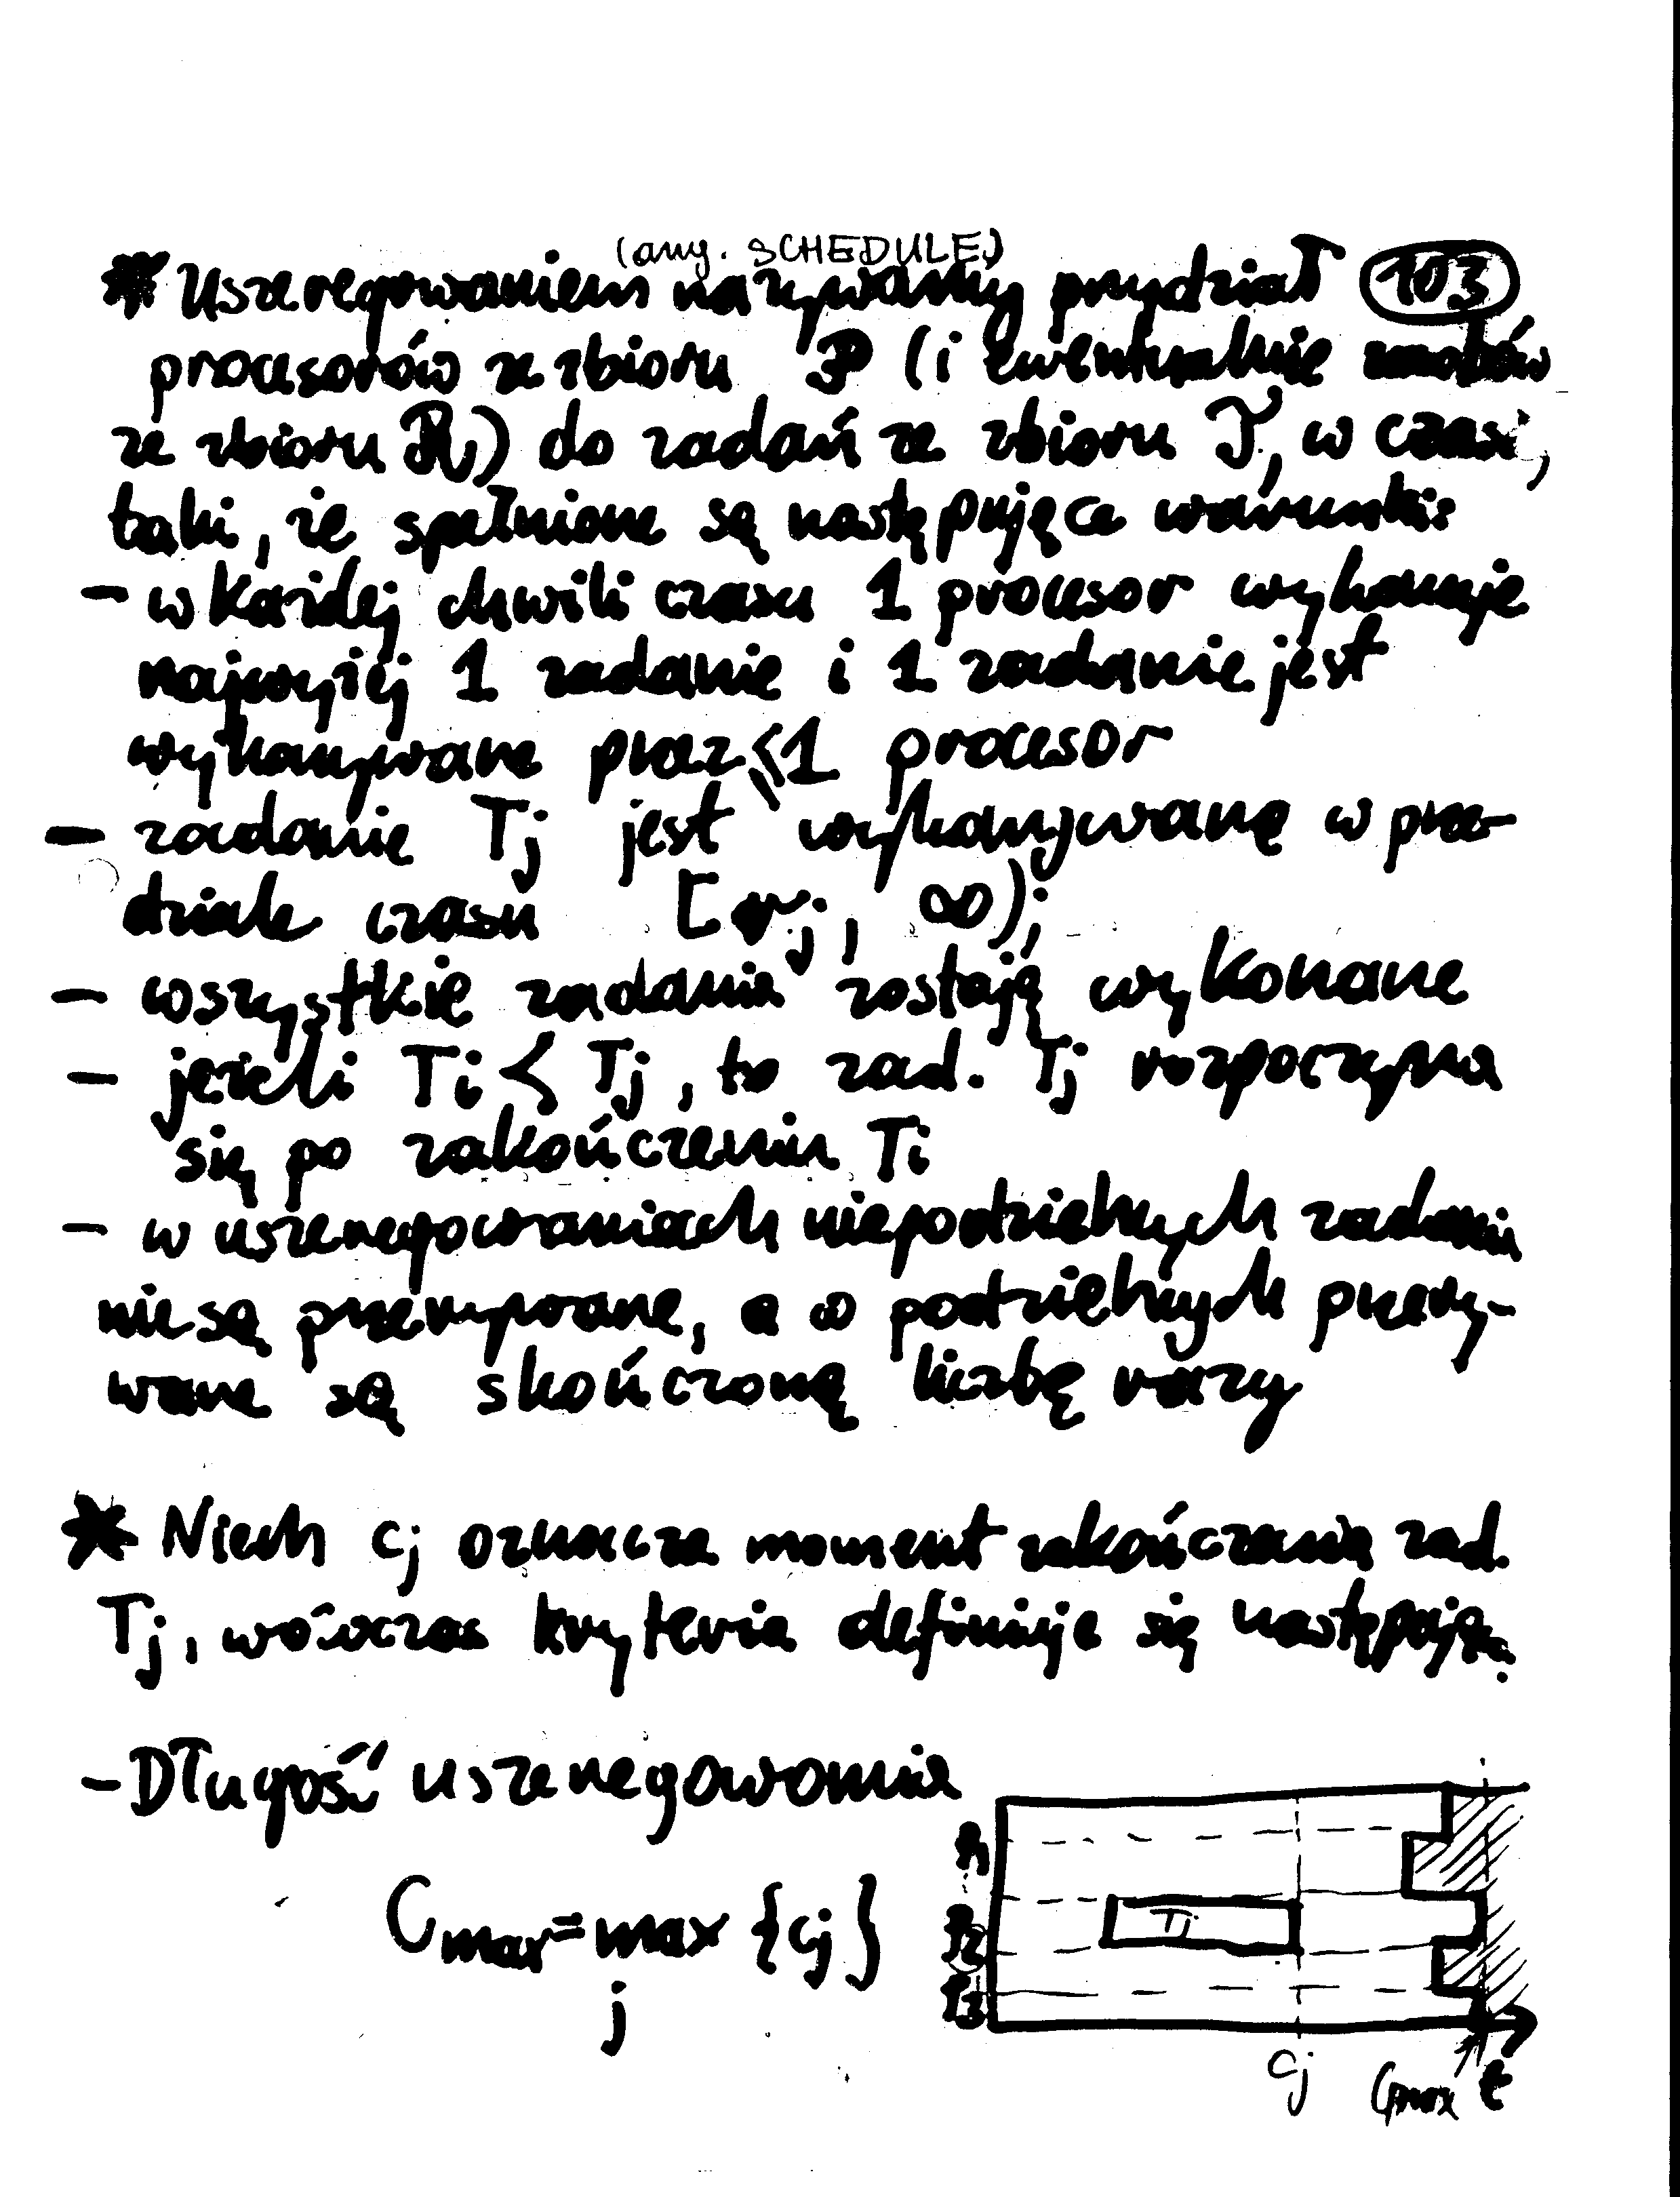 (ang. SCHEDULE)
* Uszeregowaniem nazywamy przydział 103
procesorów ze zbioru P (i ewentualnie zasobów
ze zbioru R) do zadań ze zbioru T, w czasie,
taki, że spełnione są następujące warunki:
- w każdej chwili czasu 1 procesor wykonuje
najwyżej 1 zadanie i 1 zadanie jest
wykonywane przez ≤1 procesor
- zadanie Tj jest wykonywane w prze-
dziale czasu [rj, ∞);
- wszystkie zadania zostają wykonane
- jeżeli Ti < Tj, to zad. Tj rozpoczyna
się po zakończeniu Ti
- w uszeregowaniach niepodzielnych zadania
nie są przerywane, a w podzielnych przery-
wane są skończoną liczbę razy
* Niech cj oznacza moment zakończenia zad.
Tj, wówczas kryteria definiuje się następująco:
- Długość uszeregowania
Cmax = max {cj}
j
P1
P2
P3
Tj
cj
Cmax
t